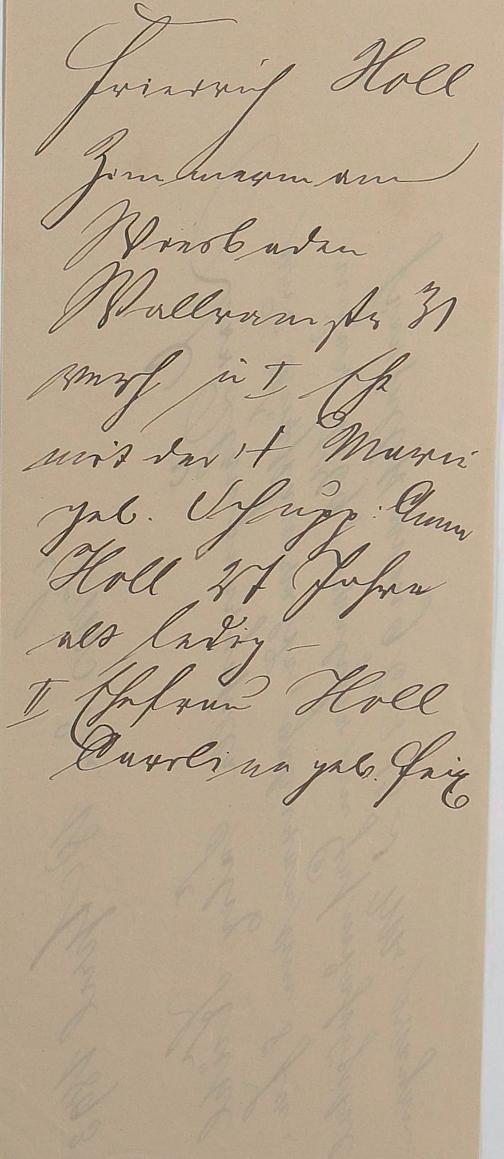 Friedrich Holl
Zimmermann
Wiesbaden
Wallramstr 31
verh in I Ehe
mit der † Marie
geb. Schupp: Anna
Holl 27 Jahre
alt ledig –
II Ehefrau Holl
Carolina geb. Feix